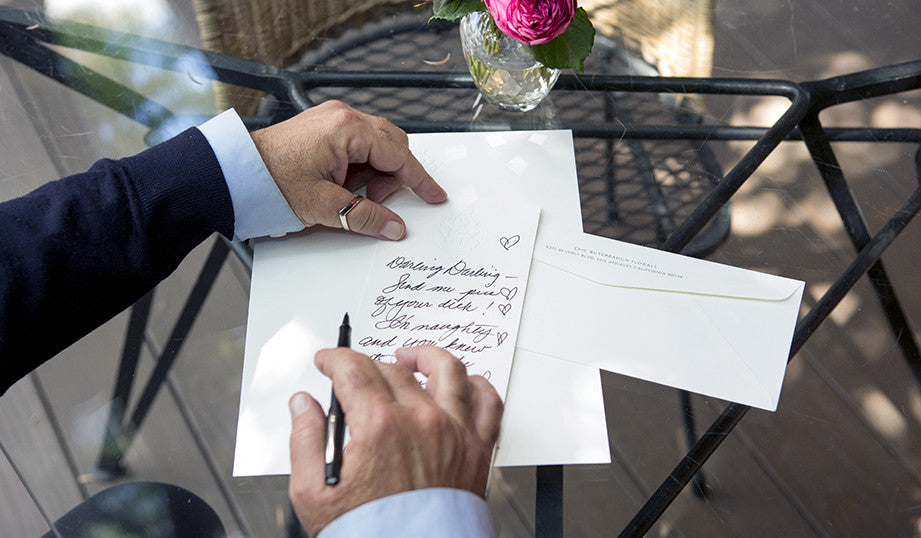 Darling Darling –
Send me pic
of your dick!
I'm naughty
and you know
ERIC BUTERBAUGH FLORALS
BEVERLY BLVD. LOS ANGELES, CALIFORNIA 90048